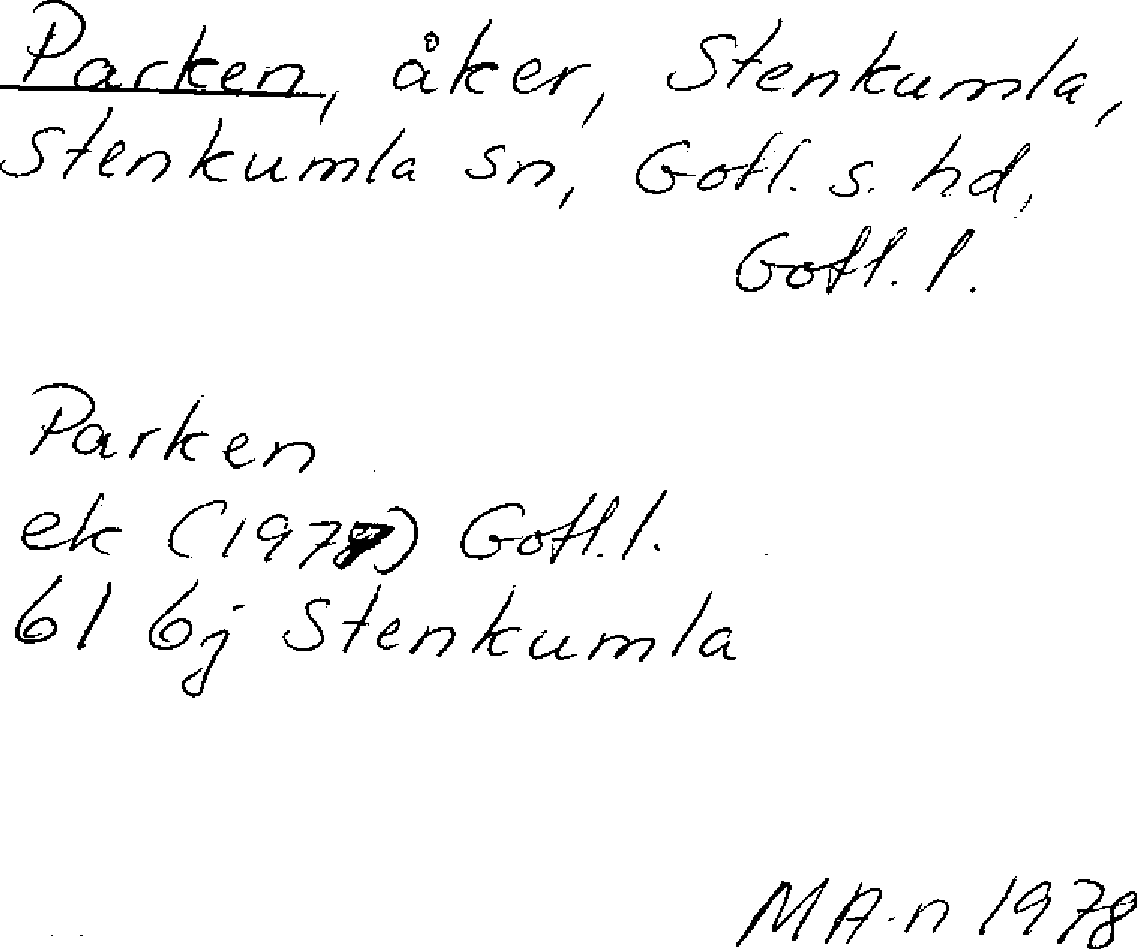 Parken, åker, Stenkumla,
Stenkumla sn, Gotl. s. hd,
Gotl. l.
Parken
ek (1977) Gotl. l.
6I 6j Stenkumla
MA-n 1978